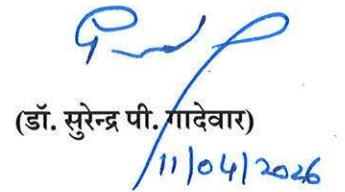 (डॉ. सुरेन्द्र पी. गादेवार)
11/04/2026